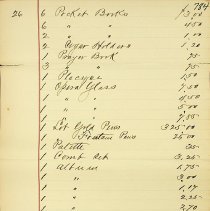 784
26 6 Pocket Books 3.00
6 " " 4.50
2 " " 1.00
2 Cigar Holders 1.20
1 Prayer Book .75
3 " .75
1 1.50
1 Opera Glass 7.50
1 " " 4.50
1 " " 5.00
1 " " 7.55
1 Lot Gold Pens 325.00
1 " Fountain Pens 25.00
1 Palette .35
1 Comb Set 3.25
1 Album 1.75
1 " 3.00
1 " 1.07
1 " 2.25
1 " 2.70